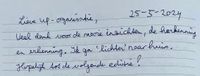 Lieve up-organisatie, 25-5-2024
Veel dank voor de mooie inzichten, de herkenning
en erkenning. Ik ga 'lichter' naar huis.
Hopelijk tot de volgende editie!